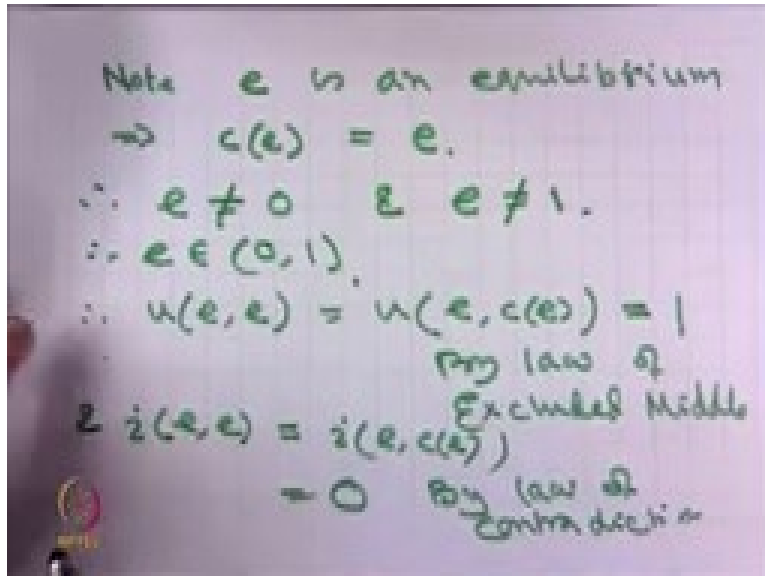 Note e is an equilibrium
⇒ c(e) = e.
∴ e ≠ 0 & e ≠ 1.
∴ e ∈ (0,1).
∴ u(e,e) = u(e,c(e)) = 1
By law of
Excluded Middle
& i(e,e) = i(e,c(e))
= 0 By law of
contradiction
NPTEL